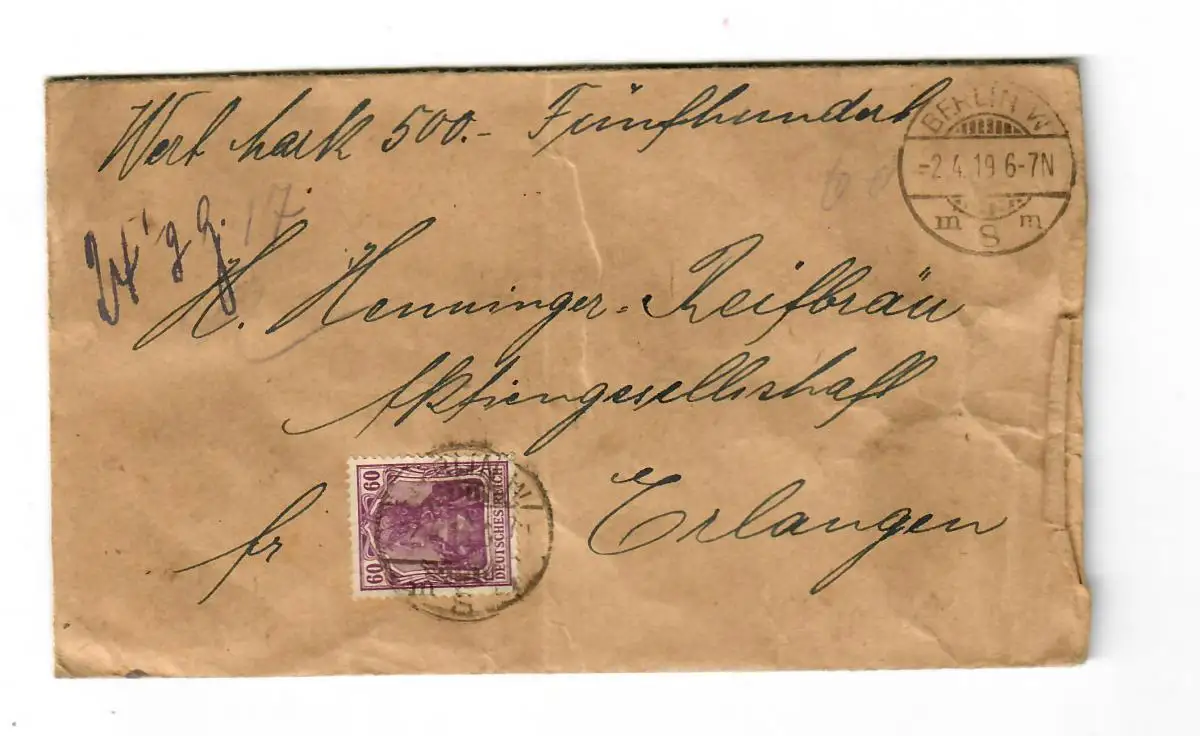 Wert Mark 500.- Fünfhundert
BERLIN W
-2.4.19 6-7N
m 8 m
17
H. Henninger-Reifbräu
Aktiengesellschaft
fr Erlangen
60 60
DEUTSCHES REICH